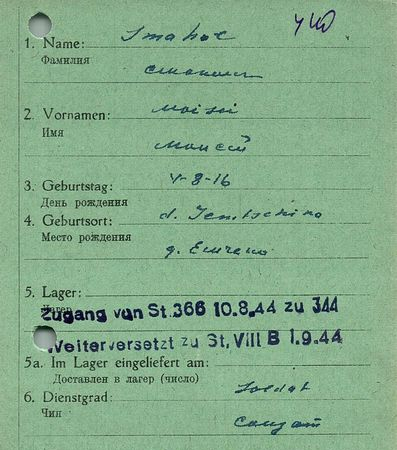 1. Name:
Фамилия
2. Vornamen:
Имя
Моисей
3. Geburtstag: 4-8-16
День рождения
4. Geburtsort: d.
Место рождения д.
5. Lager:
Лагерь
Zugang von St. 366 10.8.44 zu 344
Weiterversetzt zu St, VIII B 1.9.44
5a. Im Lager eingeliefert am:
Доставлен в лагерь (число)
6. Dienstgrad: Soldat
Чин солдат